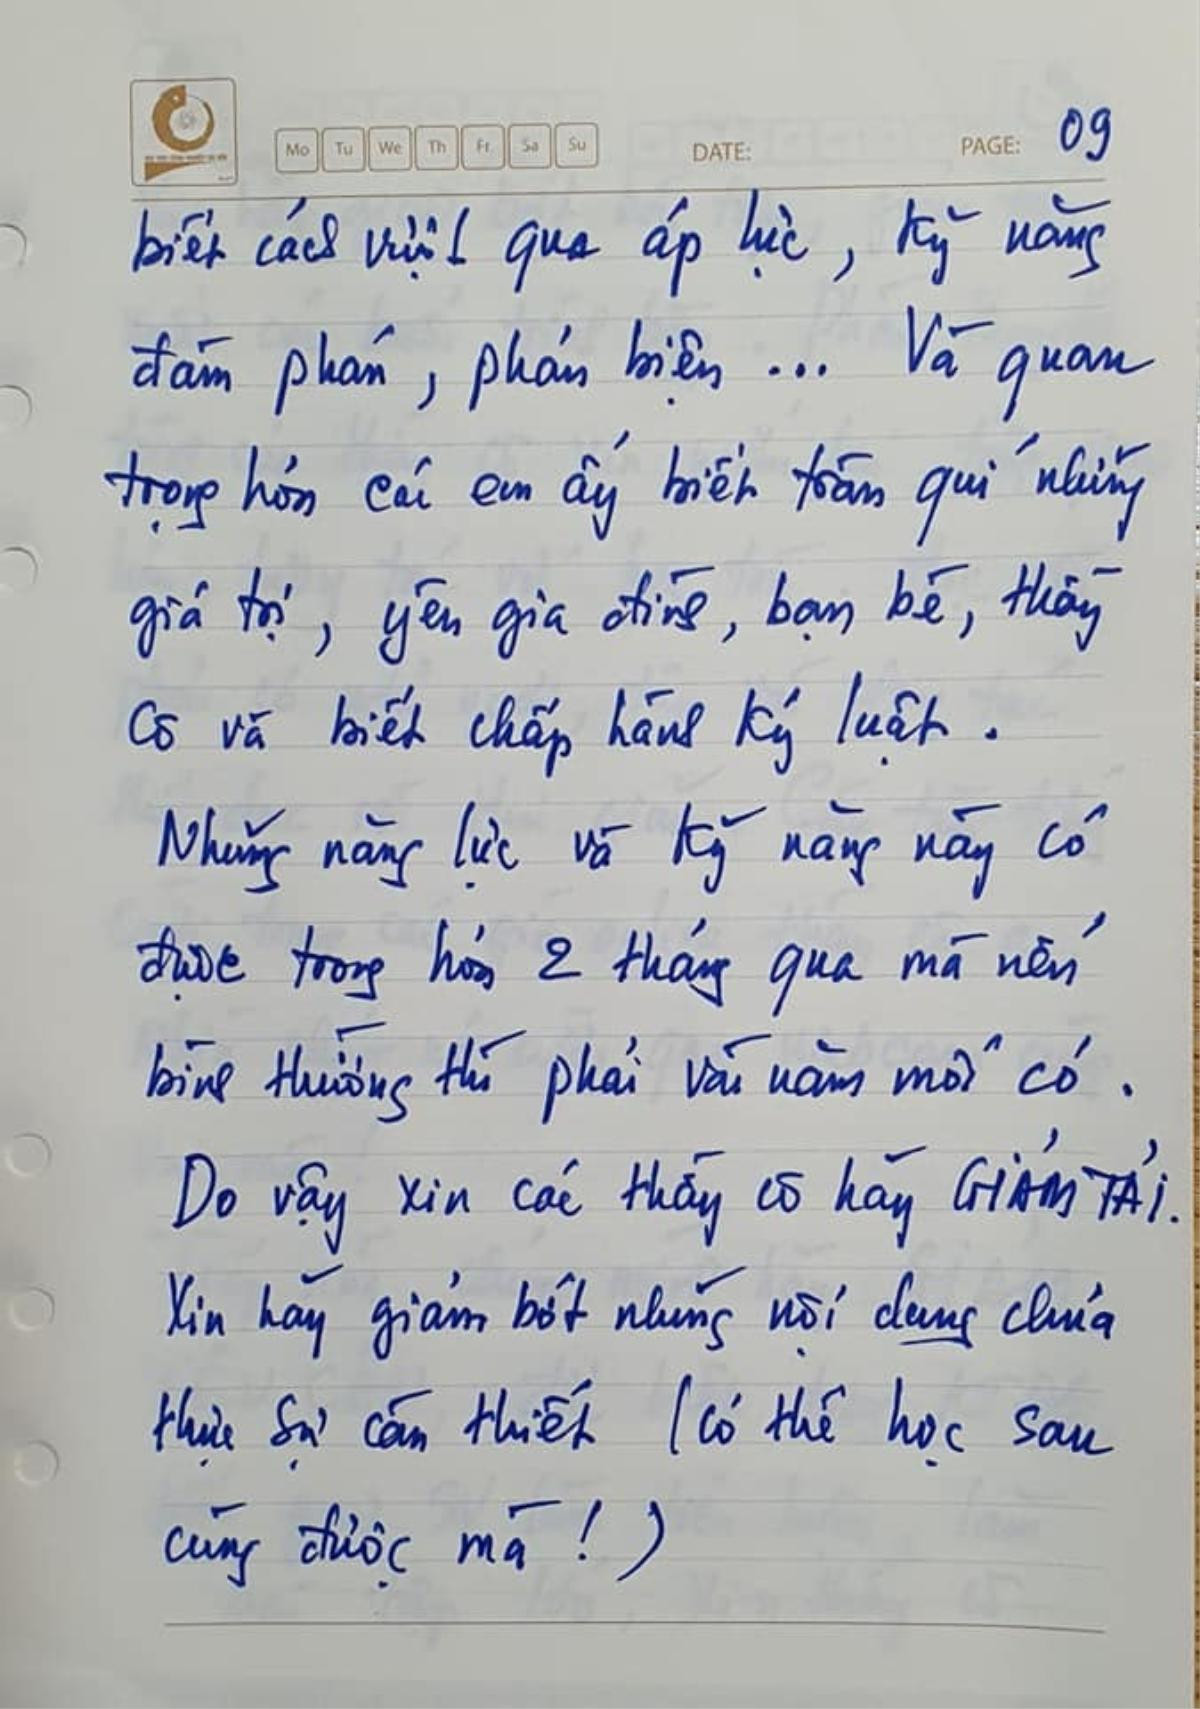 Mo Tu We Th Fr Sa Su DATE: PAGE: 09
biết cách vượt qua áp lực, kỹ năng
đàm phán, phản biện ... Và quan
trọng hơn các em ấy biết trân quí những
giá trị, yêu gia đình, bạn bè, thầy
cô và biết chấp hành kỷ luật.
Những năng lực và kỹ năng này có
được trong hơn 2 tháng qua mà nếu
bình thường thì phải vài năm mới có.
Do vậy xin các thầy cô hãy GIẢM TẢI.
Xin hãy giảm bớt những nội dung chưa
thực sự cần thiết (có thể học sau
cũng được mà!)